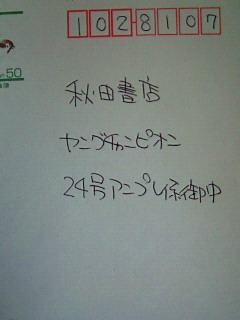 50
1028107
秋田書店
ヤングチャンピオン
24号アンプレ係御中